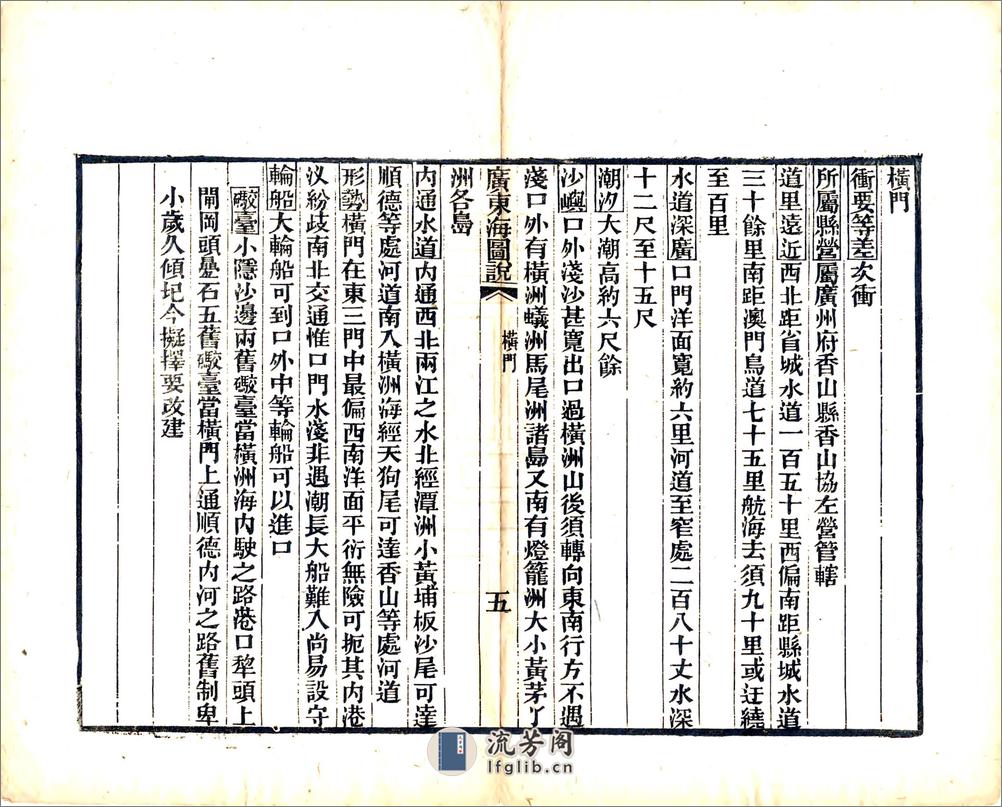 橫門
衝要等差次衝
所屬縣營屬廣州府香山縣香山協左營管轄
道里遠近西北距省城水道一百五十里西偏南距縣城水道
三十餘里南距澳門鳥道七十五里航海去須九十里或迂繞
至百里
水道深廣口門洋面寬約六里河道至窄處二百八十丈水深
十二尺至十五尺
潮汐大潮高約六尺餘
沙嶼口外淺沙甚寬出口過橫洲山後須轉向東南行方不遇
淺口外有橫洲蟻洲馬尾洲諸島又南有燈籠洲大小黃茅丫
廣東海圖說
橫門
五
洲各島
內通水道內通西北兩江之水北經潭洲小黃埔板沙尾可達
順德等處河道南入橫洲海經天狗尾可達香山等處河道
形勢橫門在東三門中最偏西南洋面平衍無險可扼其內港
汊紛歧南北交通惟口門水淺非遇潮長大船難入尚易設守
輪船大輪船可到口外中等輪船可以進口
礮臺小隱沙邊兩舊礮臺當橫洲海內駛之路港口犂頭上
閘岡頭壘石五舊礮臺當橫門上通順德內河之路舊制卑
小歲久傾圮今擬擇要改建
流芳阁
lfglib.cn